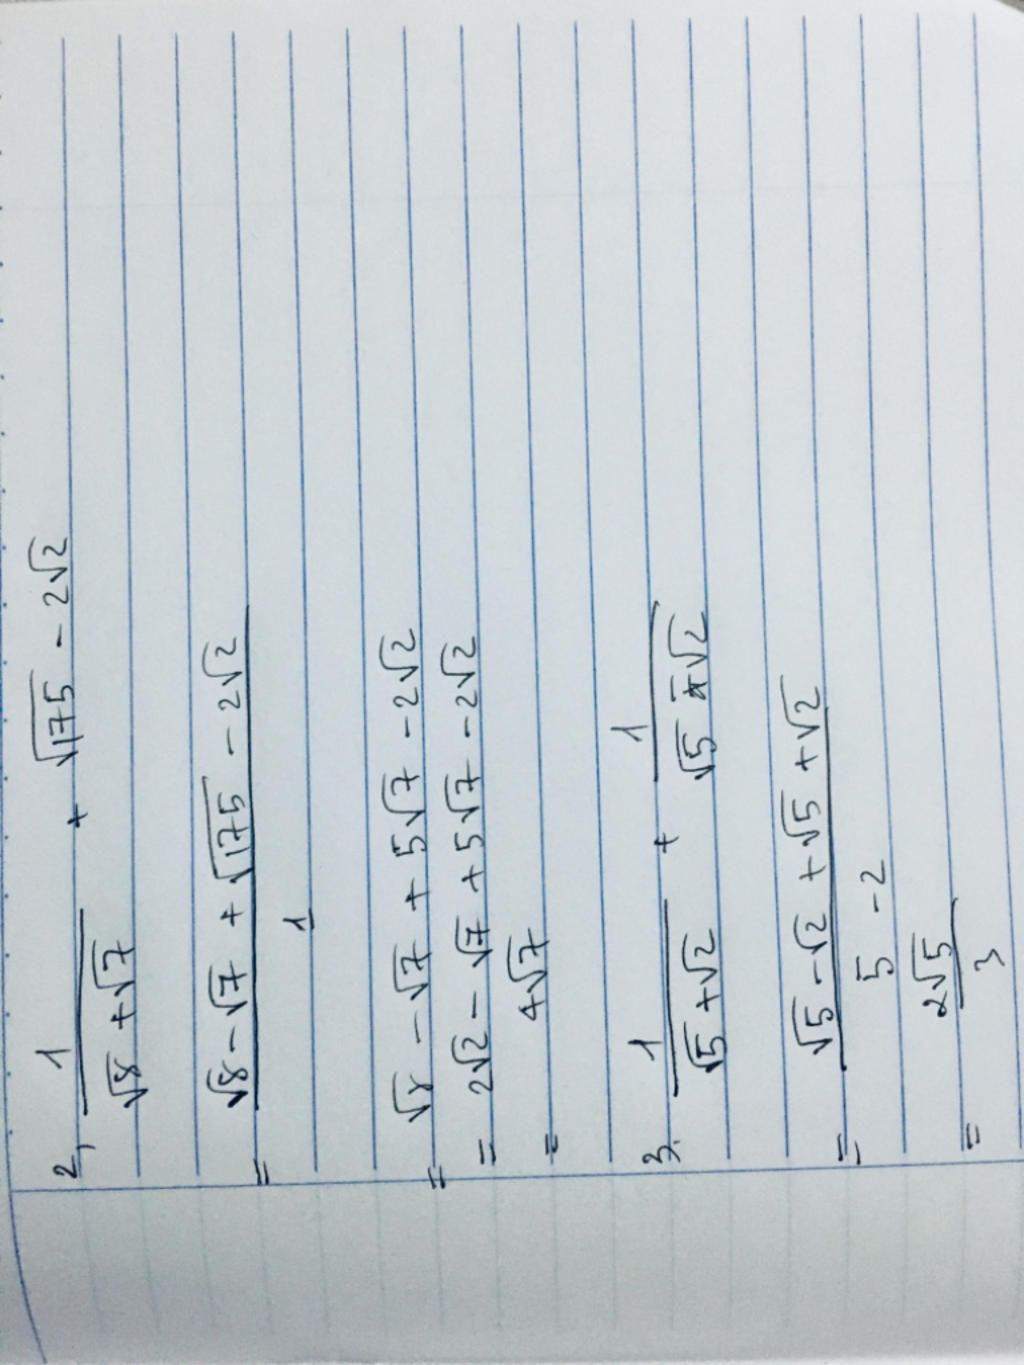 2, 1/(√8 + √7) + √175 - 2√2
= (√8 - √7 + √175 - 2√2)/1
= √8 - √7 + 5√7 - 2√2
= 2√2 - √7 + 5√7 - 2√2
= 4√7
3. 1/(√5 + √2) + 1/(√5 - √2)
= (√5 - √2 + √5 + √2)/(5 - 2)
= 2√5/3